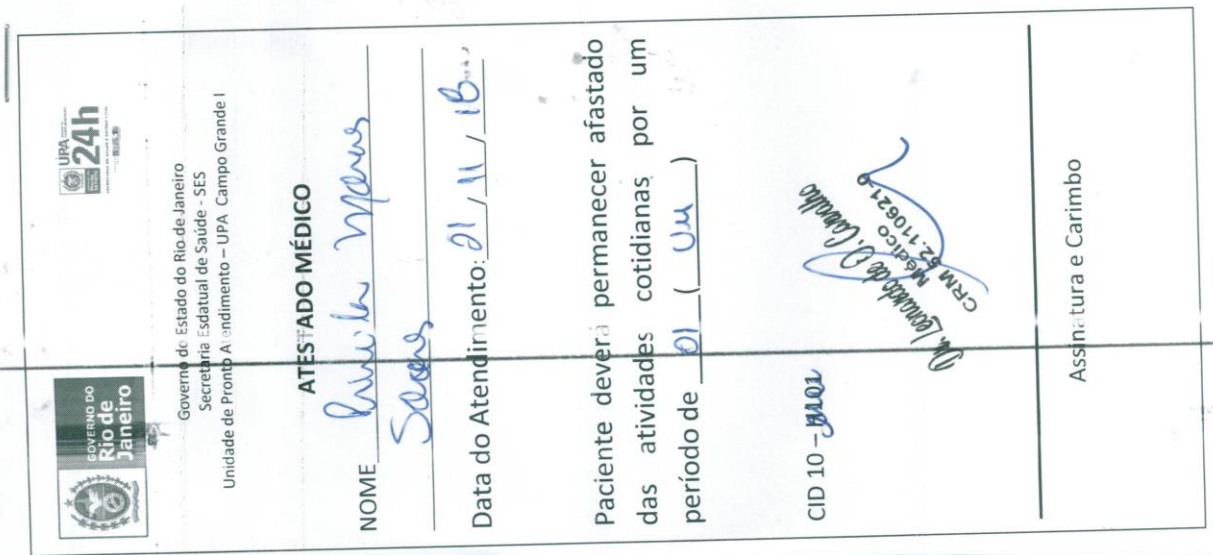 GOVERNO DO
Rio de
Janeiro
UPA
24h
Governo do Estado do Rio de Janeiro
Secretaria Esdatual de Saúde - SES
Unidade de Pronto Atendimento – UPA Campo Grande I
ATESTADO MÉDICO
NOME
Data do Atendimento: 21 / 11 / 18
Paciente deverá permanecer afastado
das atividades cotidianas por um
período de 01 ( um )
CID 10 –
Dr. Leonardo de O. Carvalho
Médico
CRM 52.110621-9
Assinatura e Carimbo